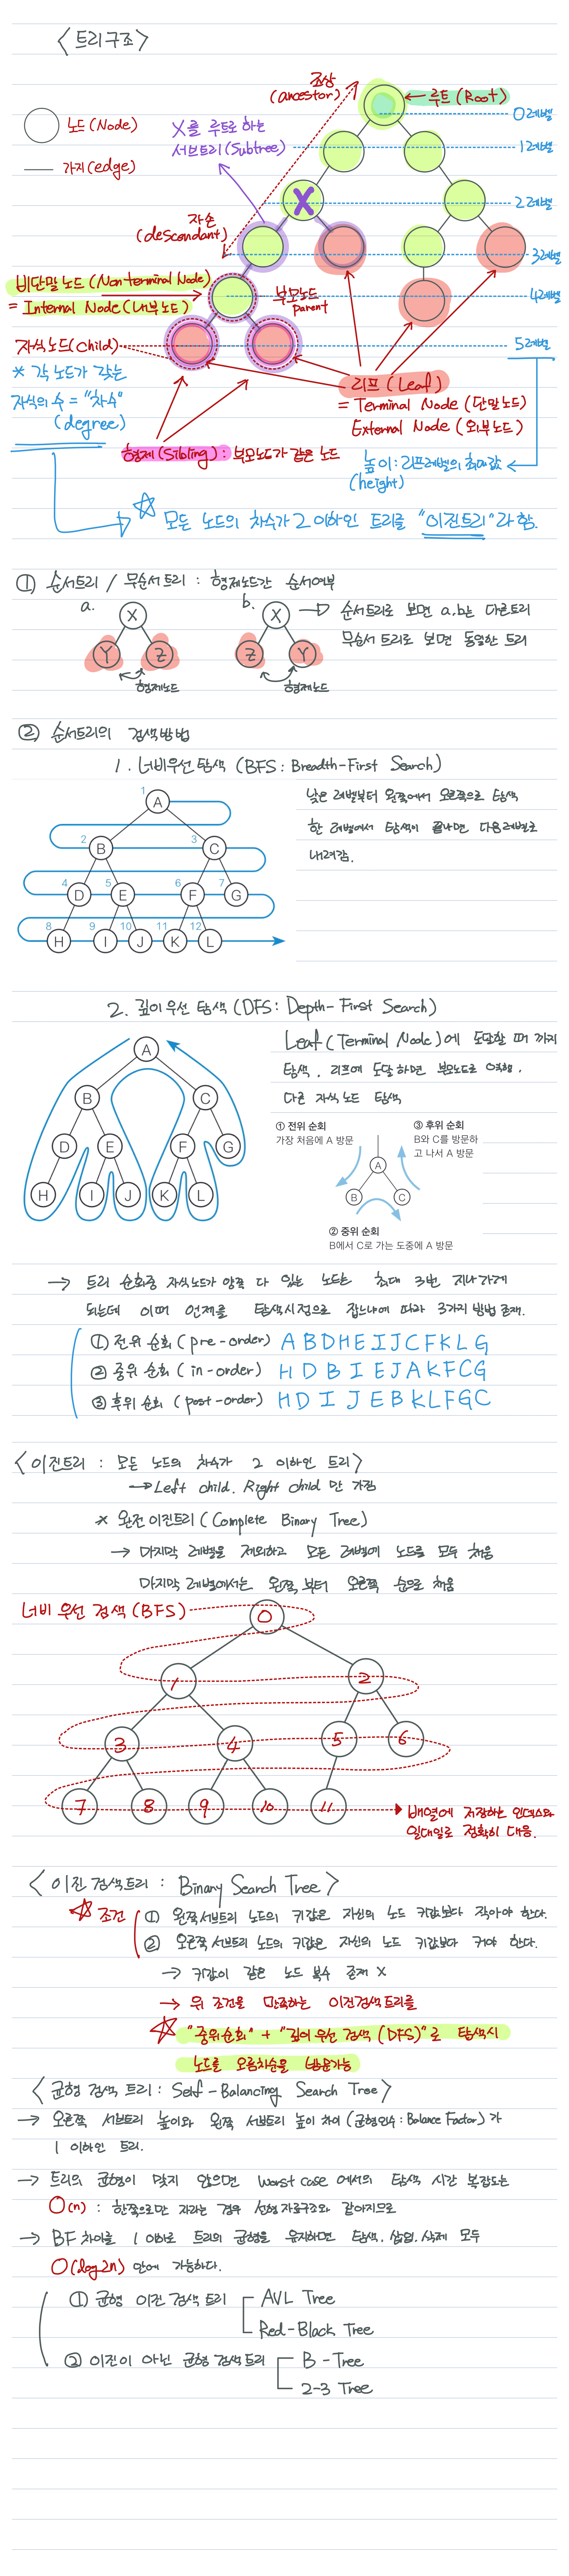 <트리구조>
노드(Node)
가지(edge)
조상
(ancestor)
루트(Root)
0레벨
X를 루트로 하는
서브트리(Subtree)
1레벨
X
2레벨
자손
(descendant)
3레벨
비단말노드(Nonterminal Node)
= Internal Node(내부노드)
부모노드
parent
4레벨
자식노드(Child)
5레벨
* 각 노드가 갖는
자식의 수 = "차수"
(degree)
리프(Leaf)
= Terminal Node(단말노드)
External Node(외부노드)
형제(Sibling): 부모노드가 같은 노드
높이: 리프레벨의 최대값
(height)
☆ 모든 노드의 차수가 2 이하인 트리를 "이진트리"라 함.
① 순서트리 / 무순서트리 : 형제노드간 순서여부
a.
X
Y
Z
형제노드
b.
X
Z
Y
형제노드
순서트리로 보면 a, b는 다른트리
무순서 트리로 보면 동일한 트리
② 순서트리의 검색방법
1. 너비우선 탐색 (BFS: Breadth-First Search)
1 A
2 B 3 C
4 D 5 E 6 F 7 G
8 H 9 I 10 J 11 K 12 L
낮은 레벨부터 왼쪽에서 오른쪽으로 탐색
한 레벨에서 탐색이 끝나면 다음레벨로
내려감.
2. 깊이우선 탐색 (DFS: Depth-First Search)
A
B C
D E F G
H I J K L
Leaf(Terminal Node)에 도달할 때 까지
탐색. 리프에 도달하면 부모노드로 이동.
다른 자식노드 탐색
① 전위 순회
가장 처음에 A 방문
③ 후위 순회
B와 C를 방문하
고 나서 A 방문
A
B C
② 중위 순회
B에서 C로 가는 도중에 A 방문
→ 트리 순회중 자식노드가 양쪽 다 있는 노드는 최대 3번 지나가게
되는데 이때 언제를 탐색시점으로 잡느냐에 따라 3가지 방법 존재.
① 전위 순회(pre-order) A B D H E I J C F K L G
② 중위 순회(in-order) H D B I E J A K F C G
③ 후위 순회 (post-order) H D I J E B K L F G C
<이진트리 : 모든 노드의 차수가 2 이하인 트리>
→ Left child. Right child 만 가짐
* 완전이진트리 (Complete Binary Tree)
→ 마지막 레벨을 제외하고 모든 레벨에 노드를 모두 채움
마지막 레벨에서는 왼쪽부터 오른쪽 순으로 채움
너비 우선 검색(BFS)
0
1 2
3 4 5 6
7 8 9 10 11
배열에 저장하는 인덱스와
일대일로 정확히 대응.
<이진 검색트리 : Binary Search Tree>
☆ 조건
① 왼쪽서브트리 노드의 키값은 자신의 노드 키값보다 작아야 한다.
② 오른쪽 서브트리 노드의 키값은 자신의 노드 키값보다 커야 한다.
→ 키값이 같은 노드 복수 존재 X
→ 위 조건을 만족하는 이진검색트리를
☆ "중위순회" + "깊이 우선 검색 (DFS)"로 탐색시
노드를 오름차순을 방문가능
<균형 검색 트리 : Self-Balancing Search Tree>
→ 오른쪽 서브트리 높이와 왼쪽 서브트리 높이 차이 (균형인수: Balance Factor)가
1 이하인 트리.
→ 트리의 균형이 맞지 않으면 worst case 에서의 탐색 시간 복잡도는
O(n) : 한쪽으로만 자라는 경우 선형 자료구조와 같아지므로
→ BF 차이를 1 이하로 트리의 균형을 유지하면 탐색. 삽입. 삭제 모두
O(log2n) 만에 가능하다.
① 균형 이진 검색 트리
AVL Tree
Red-Black Tree
② 이진이 아닌 균형 검색트리
B-Tree
2-3 Tree